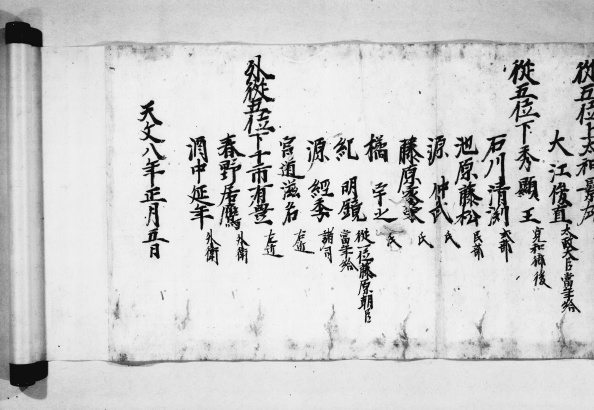 從五位下太和嘉
大江俊直 太政大臣當年給
從五位下秀顯王 貞和御後
石川清渕 式部
池原藤松 民部
源仲武 氏
藤原 氏
橘宇之 氏
紀明鏡 從一位藤原朝臣當年給
源經季 諸司
宮道滋名 左近
外從五位下十市有
春野居鷹 外衛
酒中延年 外衛
天文八年正月五日